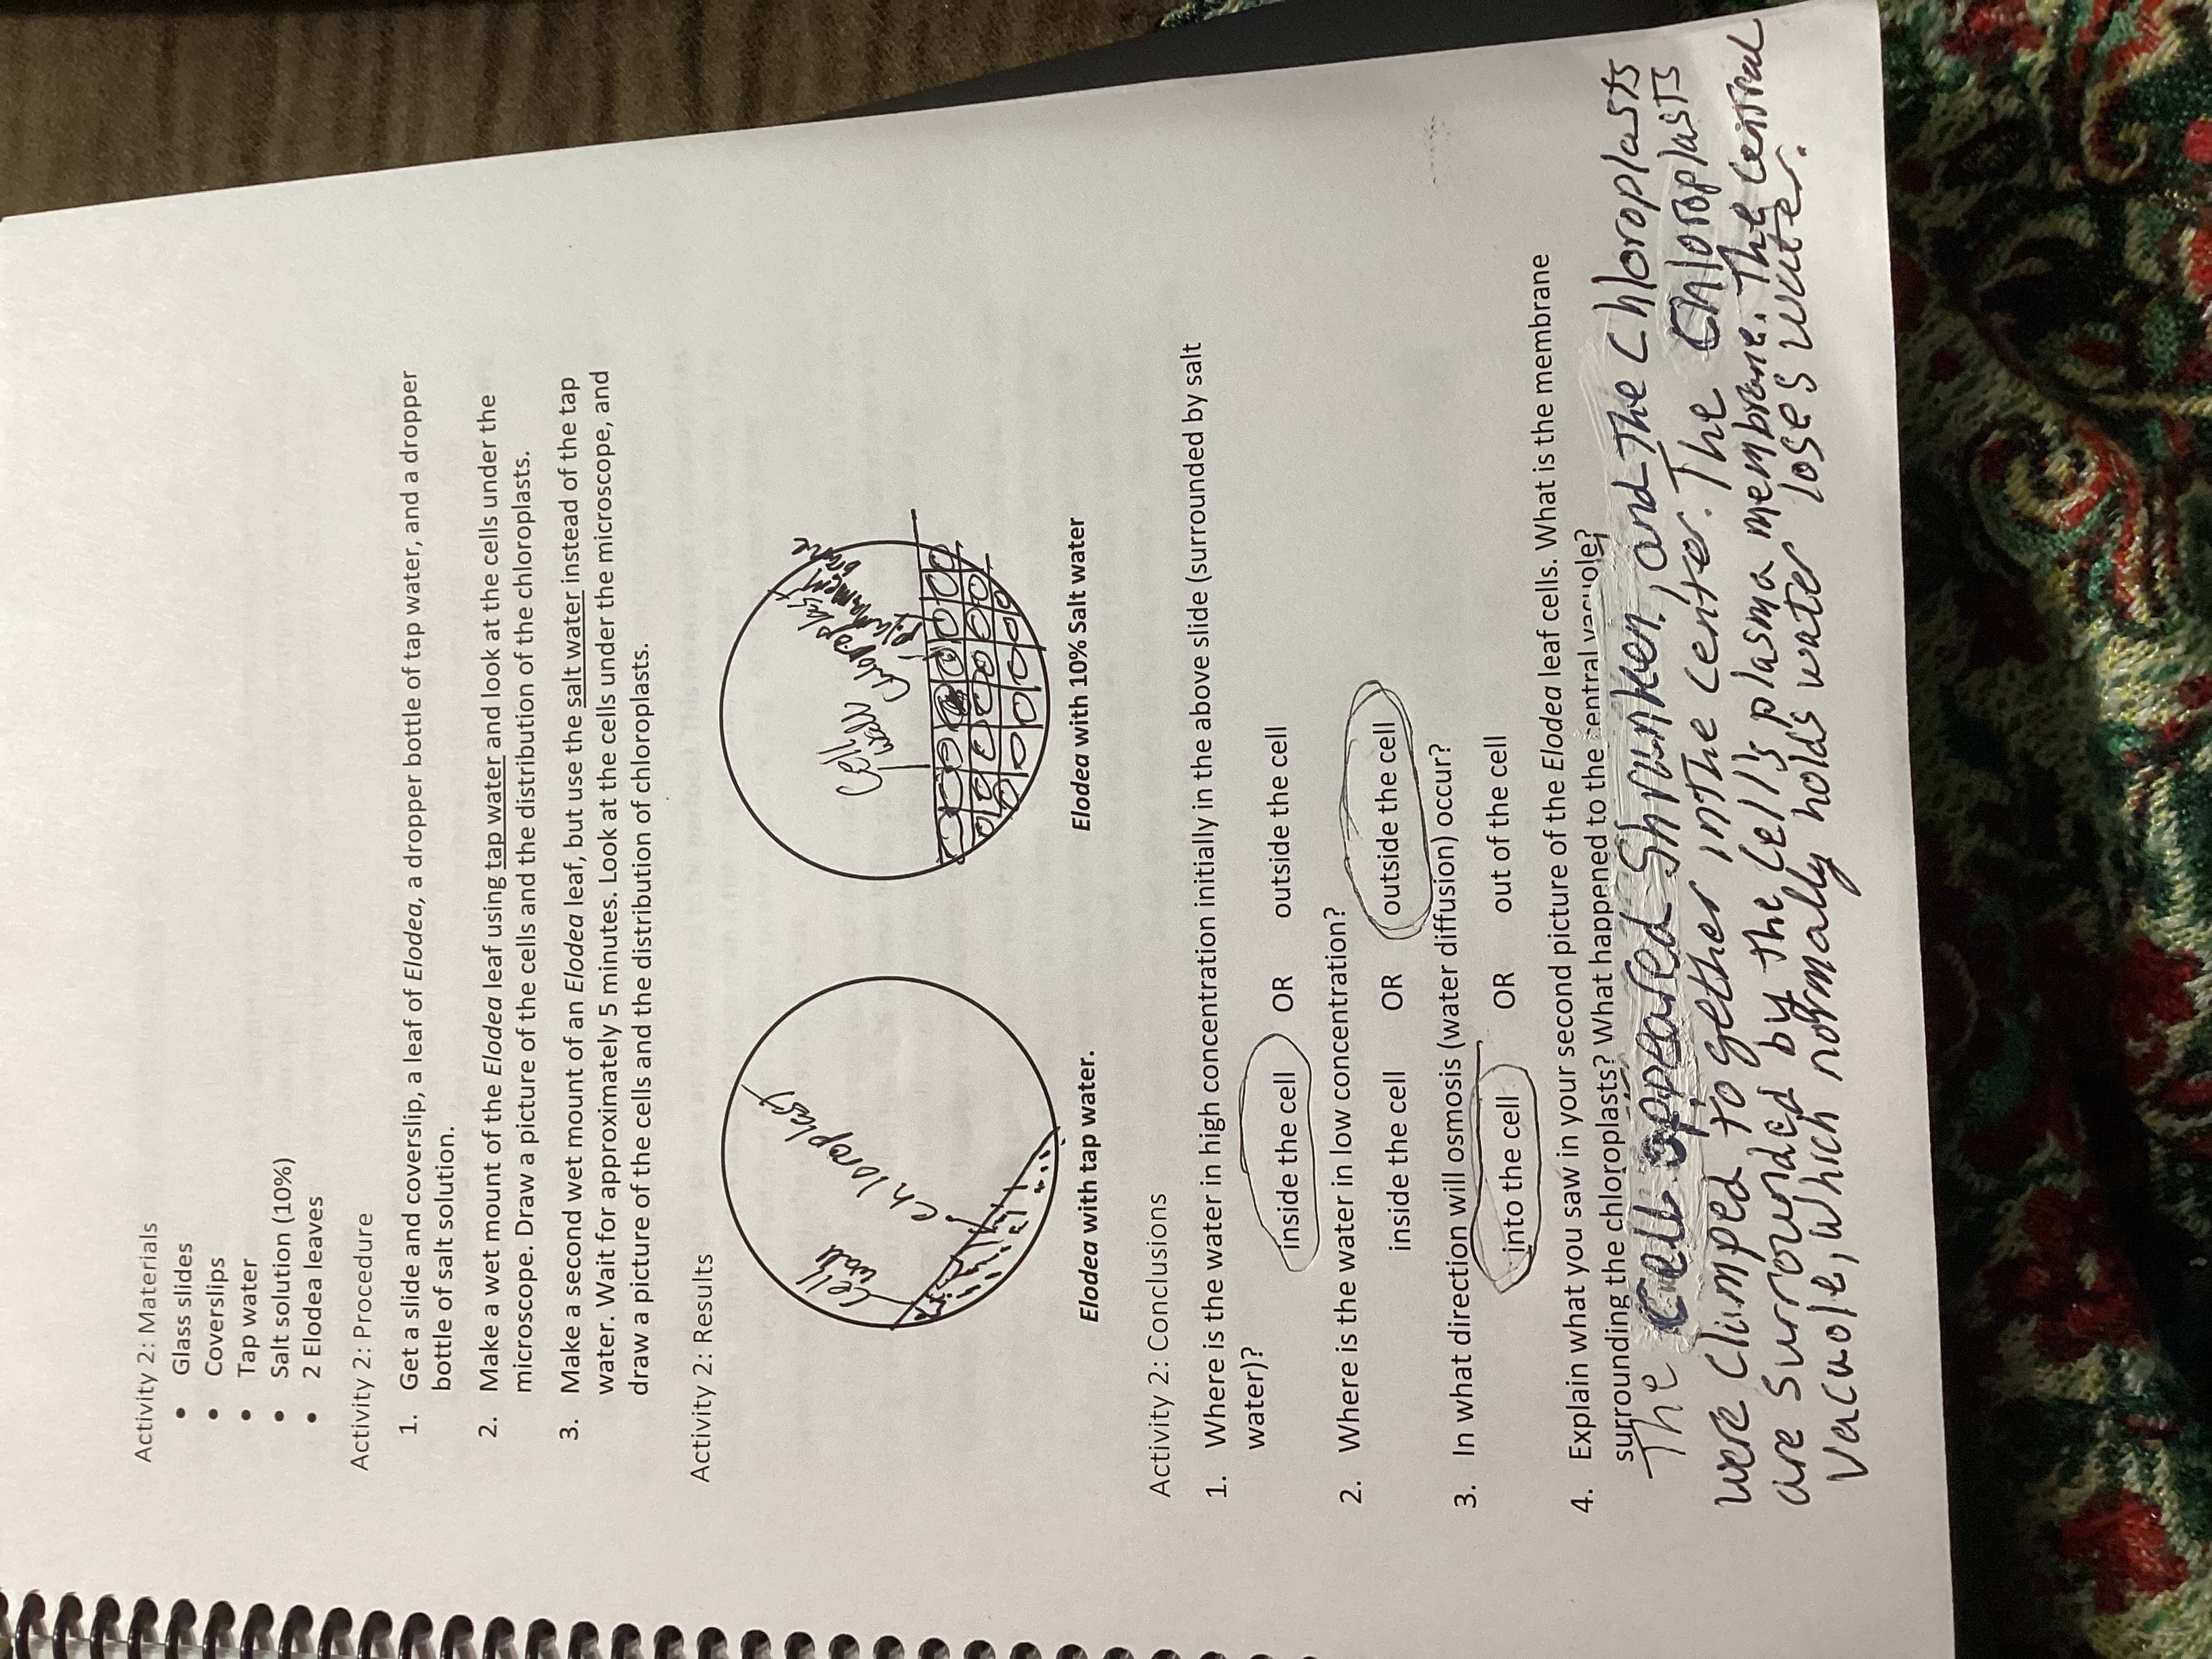 Activity 2: Materials
• Glass slides
• Coverslips
• Tap water
• Salt solution (10%)
• 2 Elodea leaves
Activity 2: Procedure
1. Get a slide and coverslip, a leaf of Elodea, a dropper bottle of tap water, and a dropper
bottle of salt solution.
2. Make a wet mount of the Elodea leaf using tap water and look at the cells under the
microscope. Draw a picture of the cells and the distribution of the chloroplasts.
3. Make a second wet mount of an Elodea leaf, but use the salt water instead of the tap
water. Wait for approximately 5 minutes. Look at the cells under the microscope, and
draw a picture of the cells and the distribution of chloroplasts.
Activity 2: Results
Cell
wall
chloroplast
Cell
wall
Chloroplast
mem
brane
Elodea with tap water.
Elodea with 10% Salt water
Activity 2: Conclusions
1. Where is the water in high concentration initially in the above slide (surrounded by salt
water)?
inside the cell OR outside the cell
2. Where is the water in low concentration?
inside the cell OR outside the cell
3. In what direction will osmosis (water diffusion) occur?
into the cell OR out of the cell
4. Explain what you saw in your second picture of the Elodea leaf cells. What is the membrane
surrounding the chloroplasts? What happened to the central vacuole?
The Cell appeared Shrunken, and The Chloroplasts
were Clumped together in the center. The Chloroplasts
are surrounded by the Cell's plasma membrane. The Central
Vacuole, which normally holds water loses water.